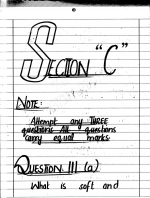 SECTION "C"
NOTE:
Attempt any THREE
questions All questions
carry equal marks.
QUESTION III (a)
What is soft and